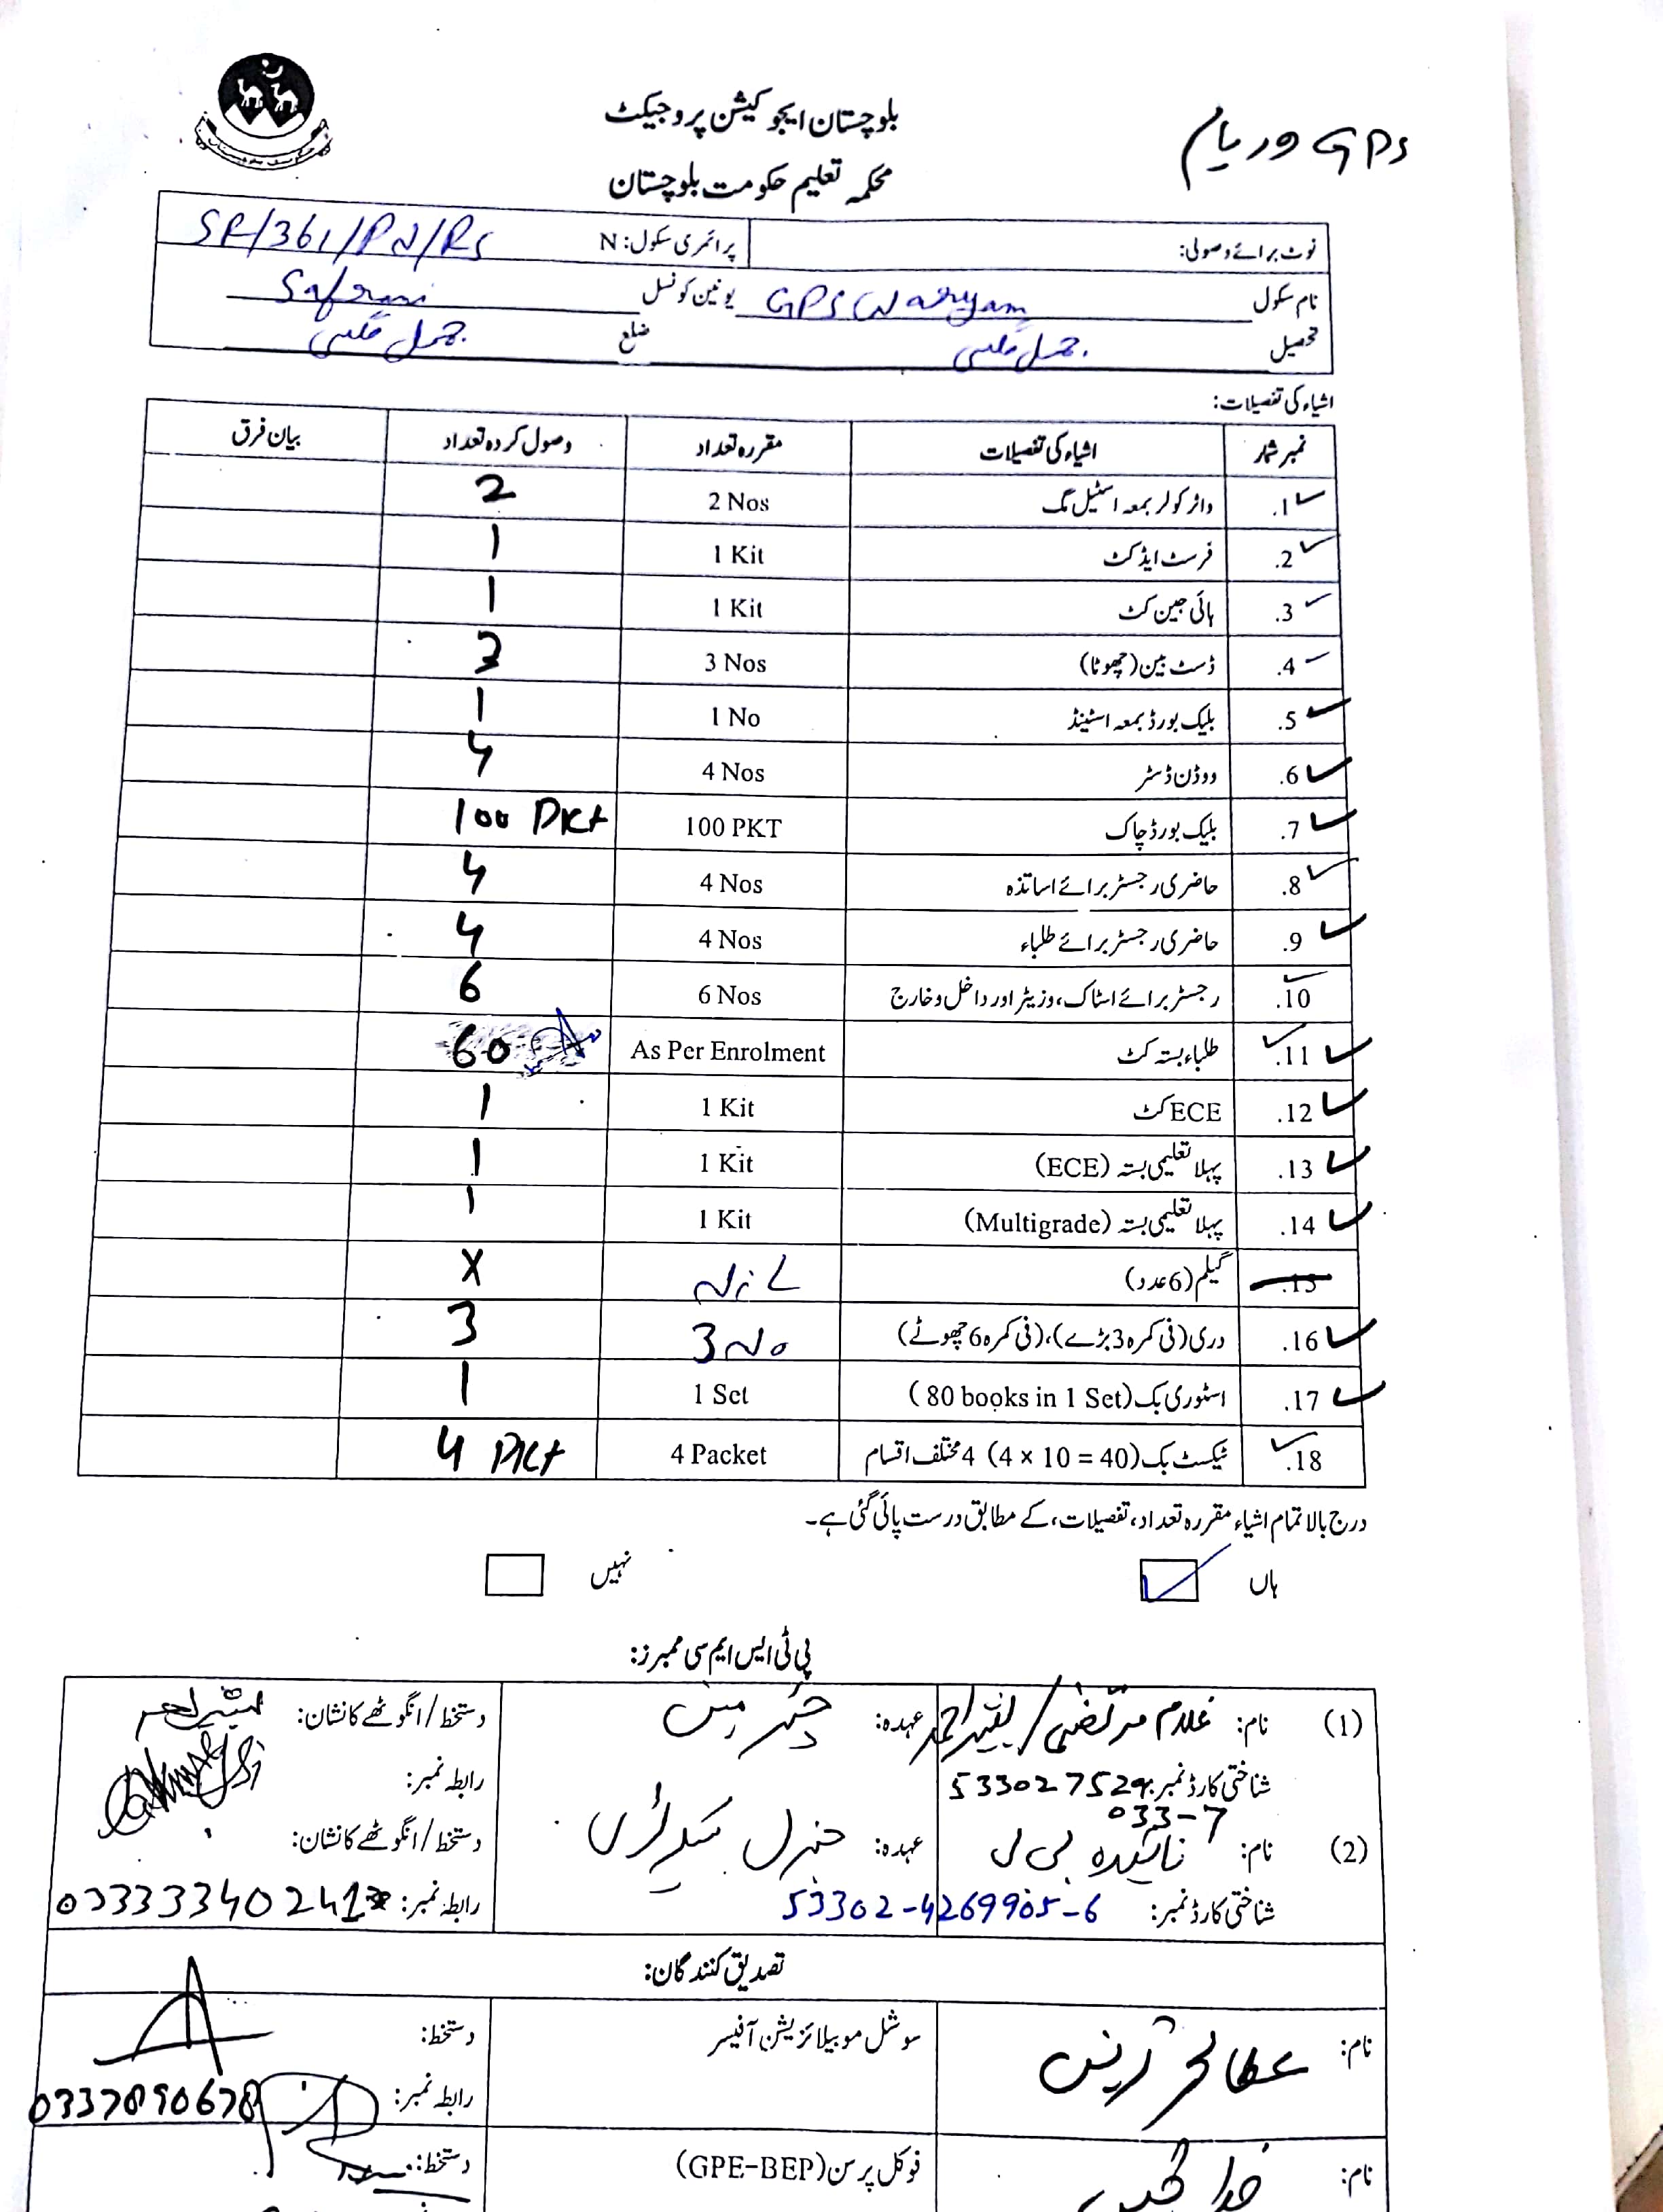 بلوچستان ایجوکیشن پروجیکٹ
محکمہ تعلیم حکومت بلوچستان
GPS وریام
نوٹ برائے وصولی: پرائمری سکول: N SF/361/PN/RS
نام سکول GPS Waryam یونین کونسل
تحصیل جھل مگسی ضلع جھل مگسی
اشیاء کی تفصیلات:
نمبر شمار اشیاء کی تفصیلات مقررہ تعداد وصول کردہ تعداد بیان فرق
1. واٹر کولر بمعہ اسٹیل مگ 2 Nos 2
2. فرسٹ ایڈ کٹ 1 Kit 1
3. ہائی جین کٹ 1 Kit 1
4. ڈسٹ بین (چھوٹا) 3 Nos 3
5. بلیک بورڈ بمعہ اسٹینڈ 1 No 1
6. ووڈن ڈسٹر 4 Nos 4
7. بلیک بورڈ چاک 100 PKT 100 Pkt
8. حاضری رجسٹر برائے اساتذہ 4 Nos 4
9. حاضری رجسٹر برائے طلباء 4 Nos 4
10. رجسٹر برائے اسٹاک، وزیٹر اور داخل و خارج 6 Nos 6
11. طلباء بستہ کٹ As Per Enrolment 60
12. ECE کٹ 1 Kit 1
13. پہلا تعلیمی بستہ (ECE) 1 Kit 1
14. پہلا تعلیمی بستہ (Multigrade) 1 Kit 1
15. گیلم (6 عدد) NiL X
16. دری (فی کمرہ 3 بڑے)، (فی کمرہ 6 چھوٹے) 3 No 3
17. اسٹوری بک (80 books in 1 Set) 1 Set 1
18. ٹیکسٹ بک (4 × 10 = 40) 4 مختلف اقسام 4 Packet 4 Pkt
درج بالا تمام اشیاء مقررہ تعداد، تفصیلات، کے مطابق درست پائی گئی ہے۔
ہاں نہیں
پی ٹی ایس ایم سی ممبرز:
(1) نام: غلام مرتضیٰ / عہدہ: چئرمین دستخط / انگوٹھے کا نشان:
شناختی کارڈ نمبر: رابطہ نمبر:
033-7
(2) نام: بی بی عہدہ: جنرل سیکرٹری دستخط / انگوٹھے کا نشان:
شناختی کارڈ نمبر: 53302-4269905-6 رابطہ نمبر:
تصدیق کنندگان:
نام: سوشل موبیلائزیشن آفیسر دستخط:
رابطہ نمبر: 0337890678
نام: فوکل پرسن (GPE-BEP) دستخط: